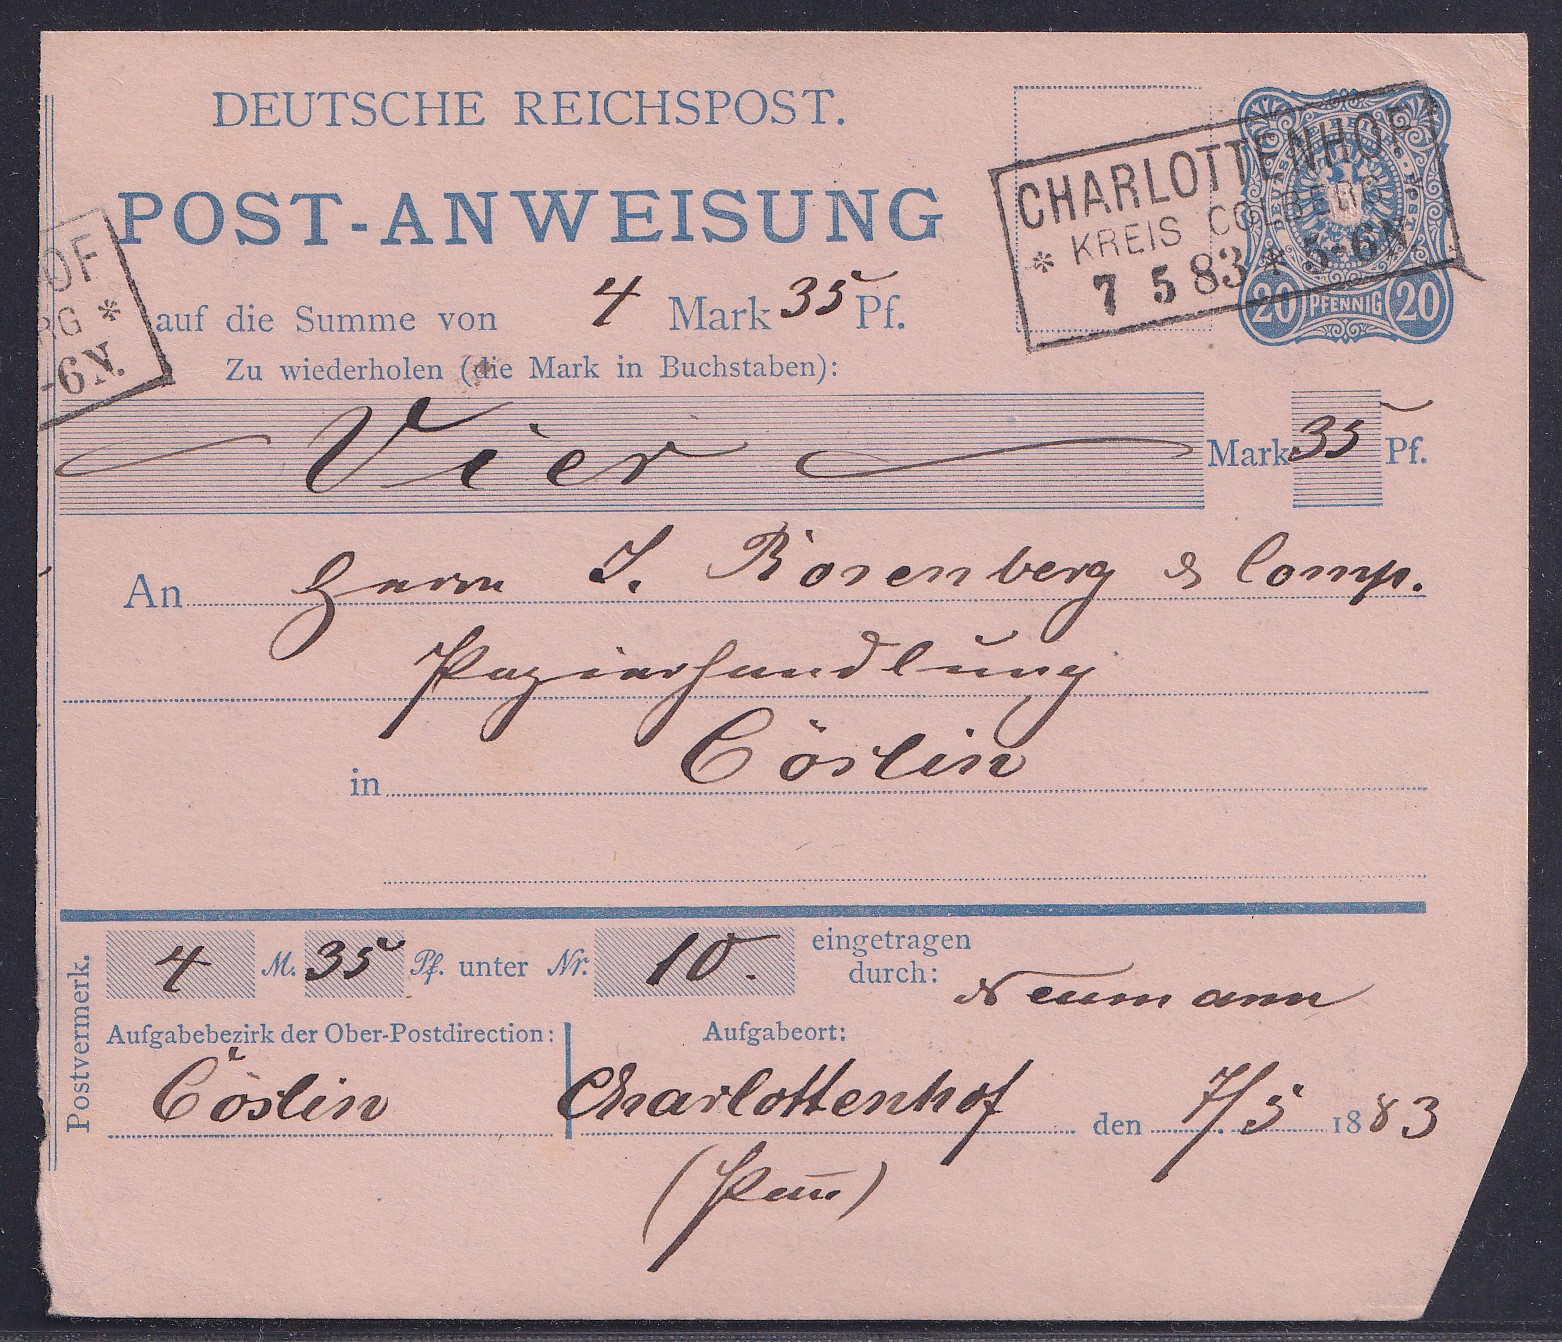 DEUTSCHE REICHSPOST.
POST-ANWEISUNG
CHARLOTTENHOF
* KREIS COLBERG *
7 5 83 * 5-6N.
20 PFENNIG 20
OF
RG *
-6N.
auf die Summe von 4 Mark 35 Pf.
Zu wiederholen (die Mark in Buchstaben):
Vier Mark 35 Pf.
An Herrn J. Rosenberg & Comp.
Papierhandlung
in Cöslin
Postvermerk.
4 M. 35 Pf. unter Nr. 10. eingetragen durch: Neumann
Aufgabebezirk der Ober-Postdirection: Aufgabeort:
Cöslin Charlottenhof den 7/5 1883
(Pom)